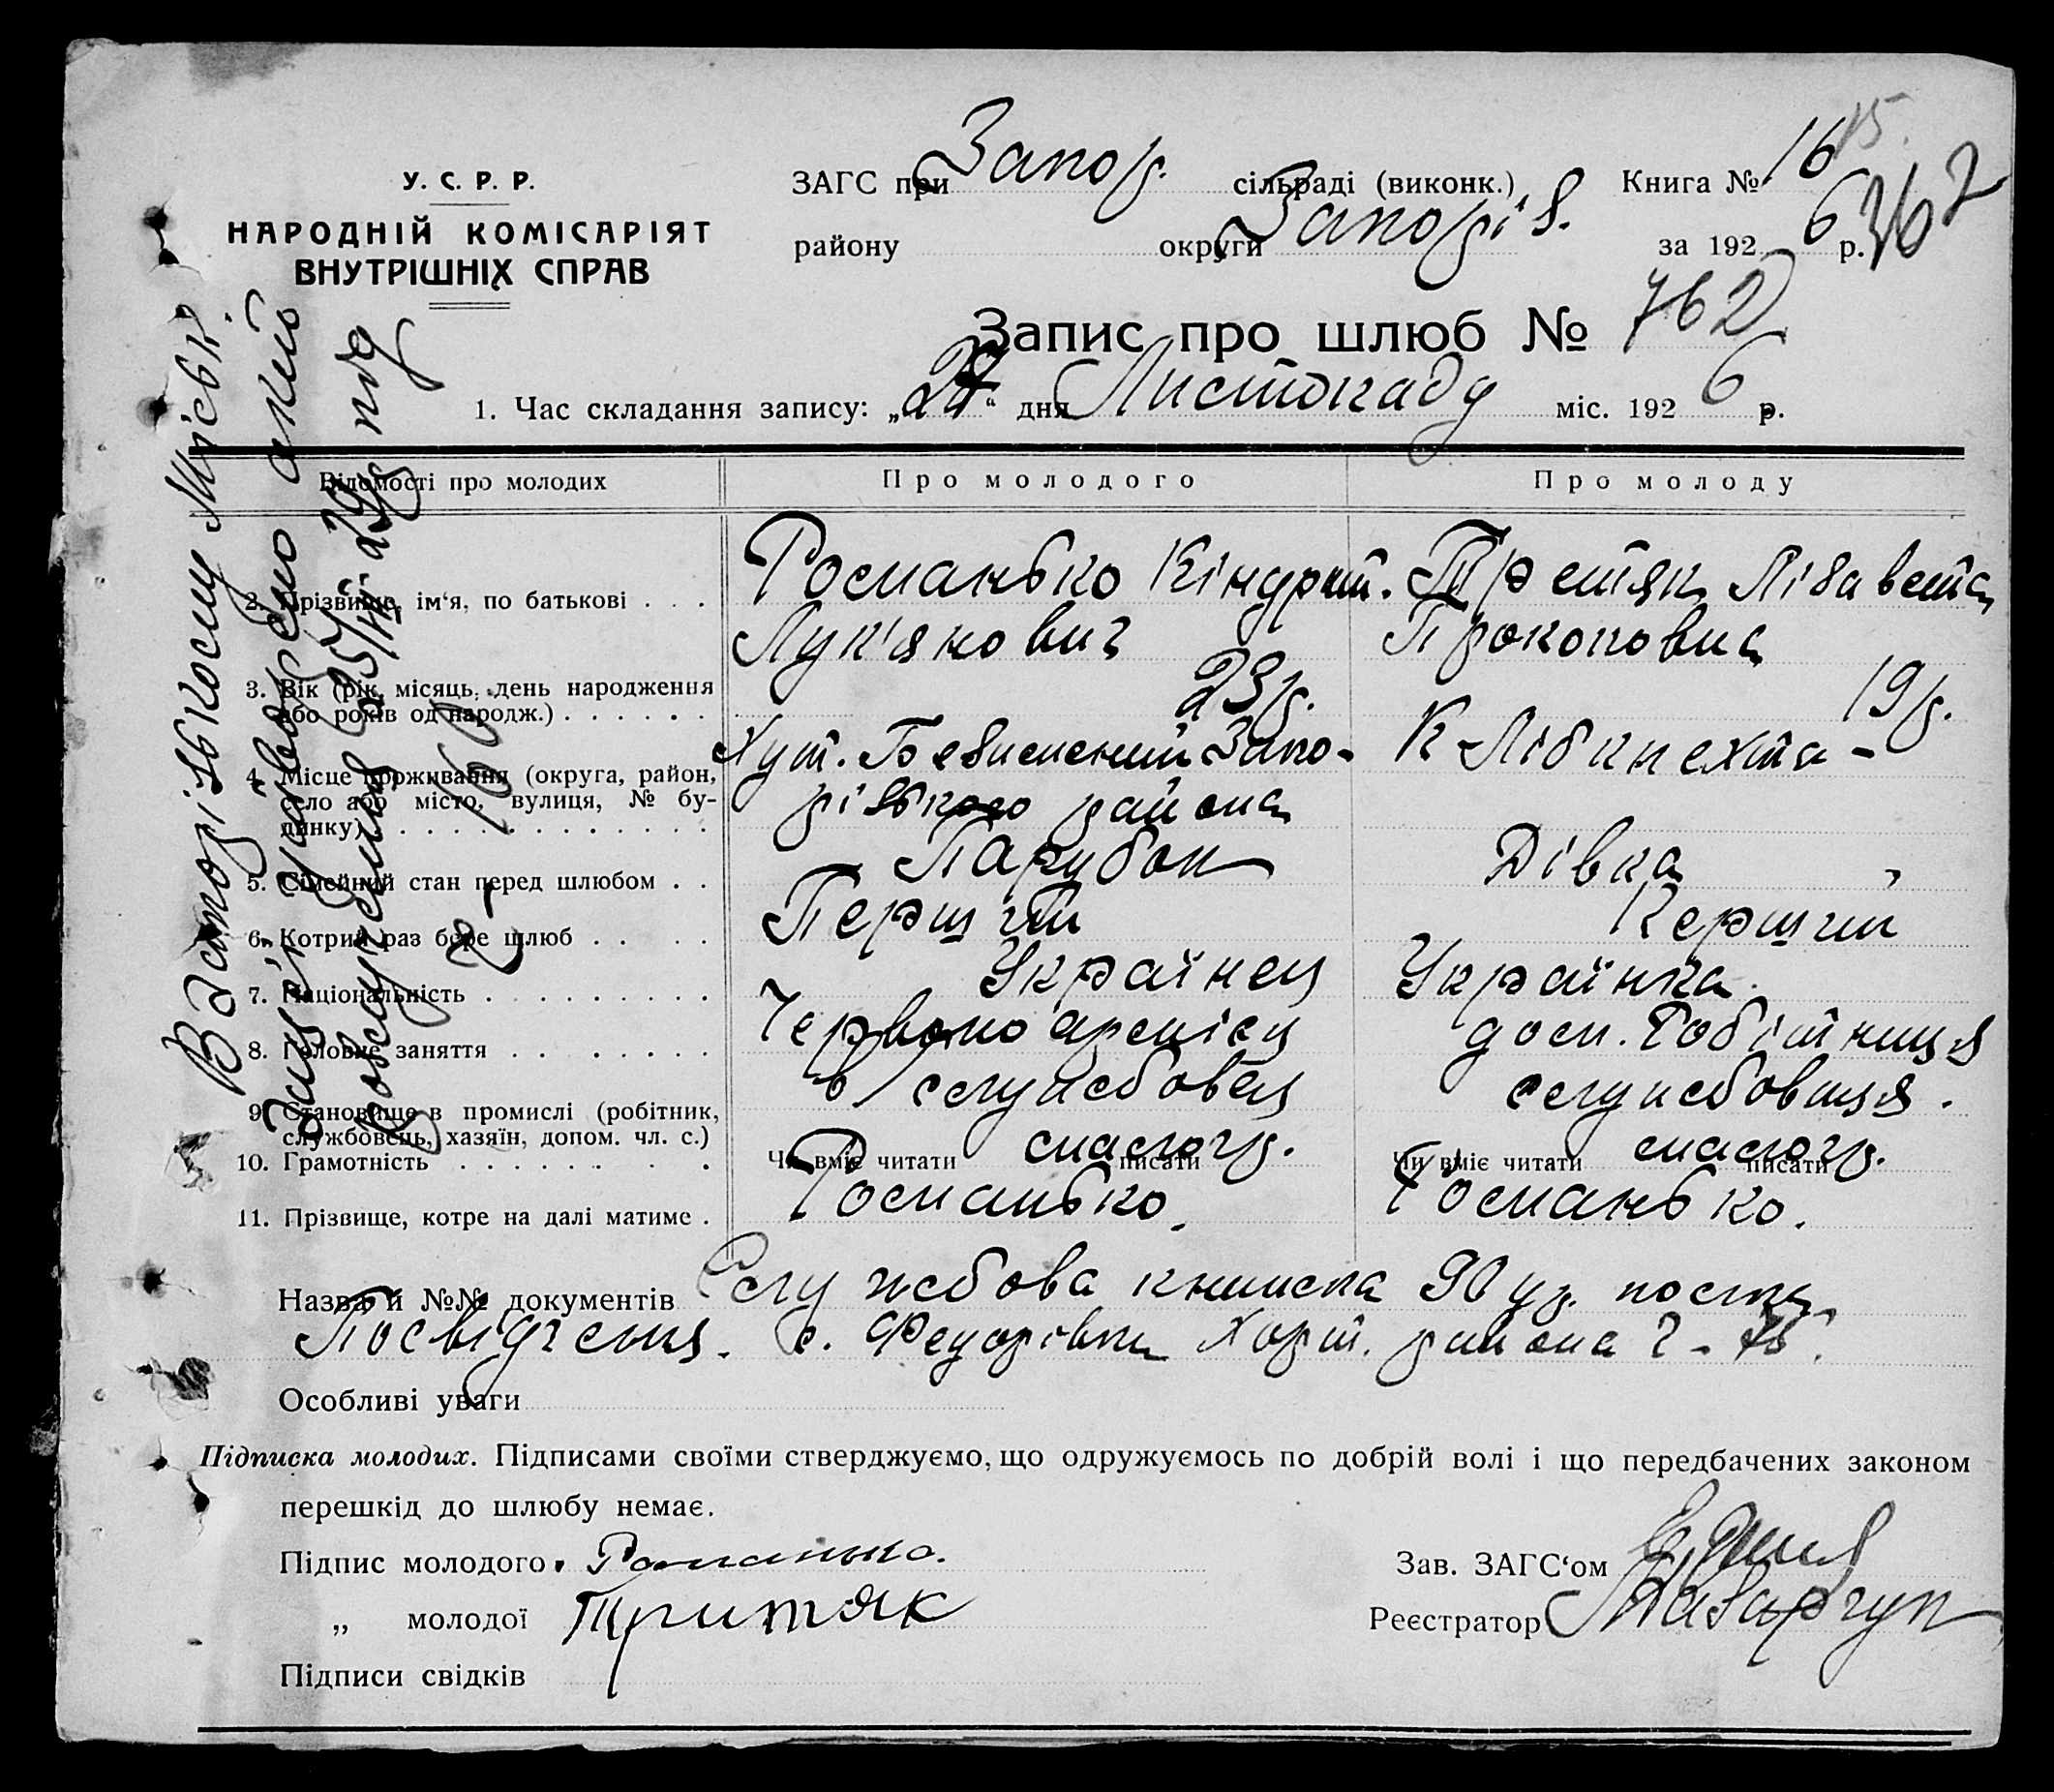 У. С. Р. Р.
НАРОДНІЙ КОМІСАРІЯТ
ВНУТРІШНІХ СПРАВ
ЗАГС при Запор. сільраді (виконк.) Книга № 16 15.
району округи Запоріз. за 1926 р. 362
Запис про шлюб № 762
1. Час складання запису: „24“ дня Листопаду міс. 1926 р.
Відомості про молодих Про молодого Про молоду
2. Прізвище, ім‘я, по батькові . . . Романько Кіндрат. Третяк Лізавета
Лук'янович Прокоповна
3. Вік (рік, місяць, день народження
або років од народж.) . . . . . . 23 р. 19 р.
4. Місце проживання (округа, район,
село або місто, вулиця, № бу-
динку) . . . . . . . . . . . . Хут. Запо- К Лібкнехта -
різького района
5. Сімейний стан перед шлюбом . . Парубок Дівка
6. Котрий раз бере шлюб . . . . Перший Перший
7. Національність . . . . . . . . Українец Українка.
8. Головне заняття . . . . . . . Червоноармієц дом. Робітниця
9. Становище в промислі (робітник,
службовець, хазяїн, допом. чл. с.) службовец службовиця.
10. Грамотність . . . . . . . . Чи вміє читати писати малогр. Чи вміє читати писати малогр.
11. Прізвище, котре на далі матиме . Романько. Романько.
Назва й №№ документів Службова книжка 90
Посвідчення. с. Федорівки Хорт. района
Особливі уваги
Підписка молодих. Підписами своїми стверджуємо, що одружуємось по добрій волі і що передбачених законом
перешкід до шлюбу немає.
Підпис молодого Романько. Зав. ЗАГС‘ом
„ молодої Тритяк Реєстратор
Підписи свідків